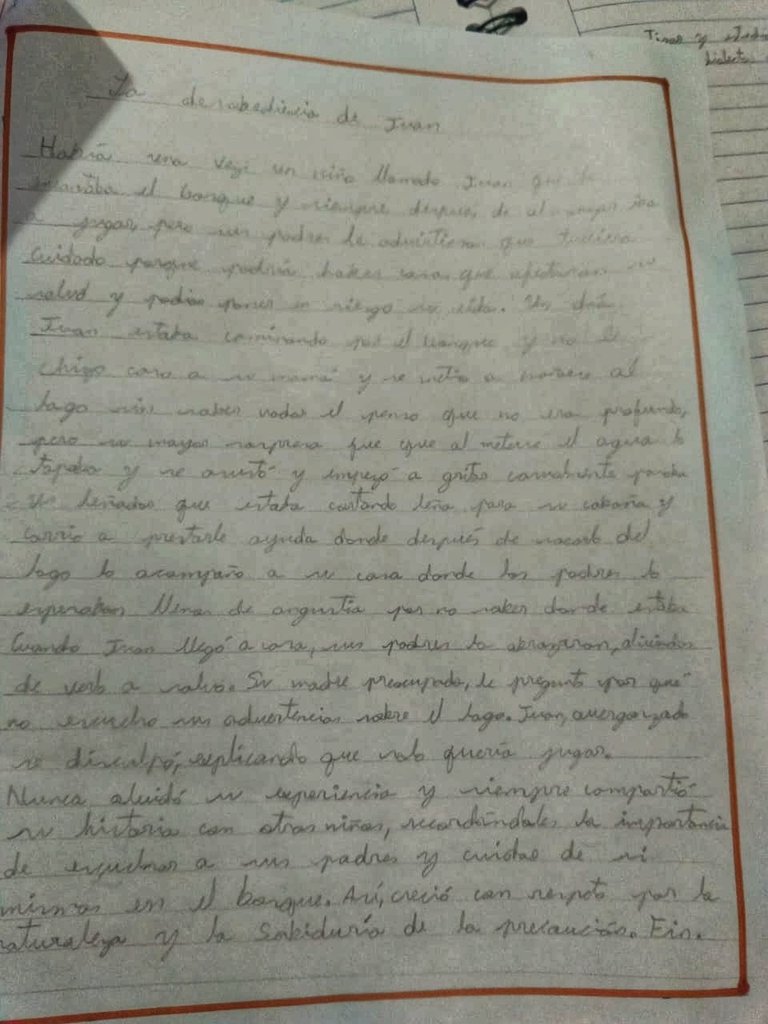 La desobediencia de Juan
Había una vez; un niño llamado Juan que le
encantaba el bosque y siempre después de
a jugar, pero sus padres le advirtieron que tuviera
cuidado porque podría haber cosas que afectaran su
salud y podías poner en riesgo su vida. Un día
Juan estaba caminando por el bosque y no le
chizo caso a su mamá y se metio a al
lago sin saber nadar el penso que no era profundo,
pero su mayor sorpresa fue que al meterse el agua lo
tapaba y se asustó y empezó a gritar casualmente pasaba
un leñador que estaba cortando leña para su cabaña y
corrio a prestarle ayuda donde después de sacarlo del
lago lo acompaño a su casa donde los padres lo
esperaban llenos de angustia por no saber donde estaba
Cuando Juan llegó a casa, sus padres lo abrazaron, aliviados
de verlo a salvo. Su madre preocupada, le pregunto por qué
no escucho sus advertencias sobre el lago. Juan, avergonzado
se disculpó, explicando que solo quería jugar.
Nunca olvidó su experiencia y siempre compartió
su historia con otros niños, recordándoles la importancia
de escuchar a sus padres y cuidar de si
mismos en el bosque. Así, creció con respeto por la
naturaleza y la sabiduría de la precaución. Fin.
Tinos y